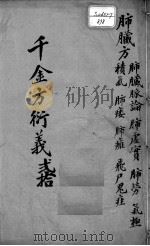 肺臟方
肺臟脉論 肺虛實 肺勞 氣極
積氣 肺痿 肺癰 飛尸鬼疰
千金方衍義